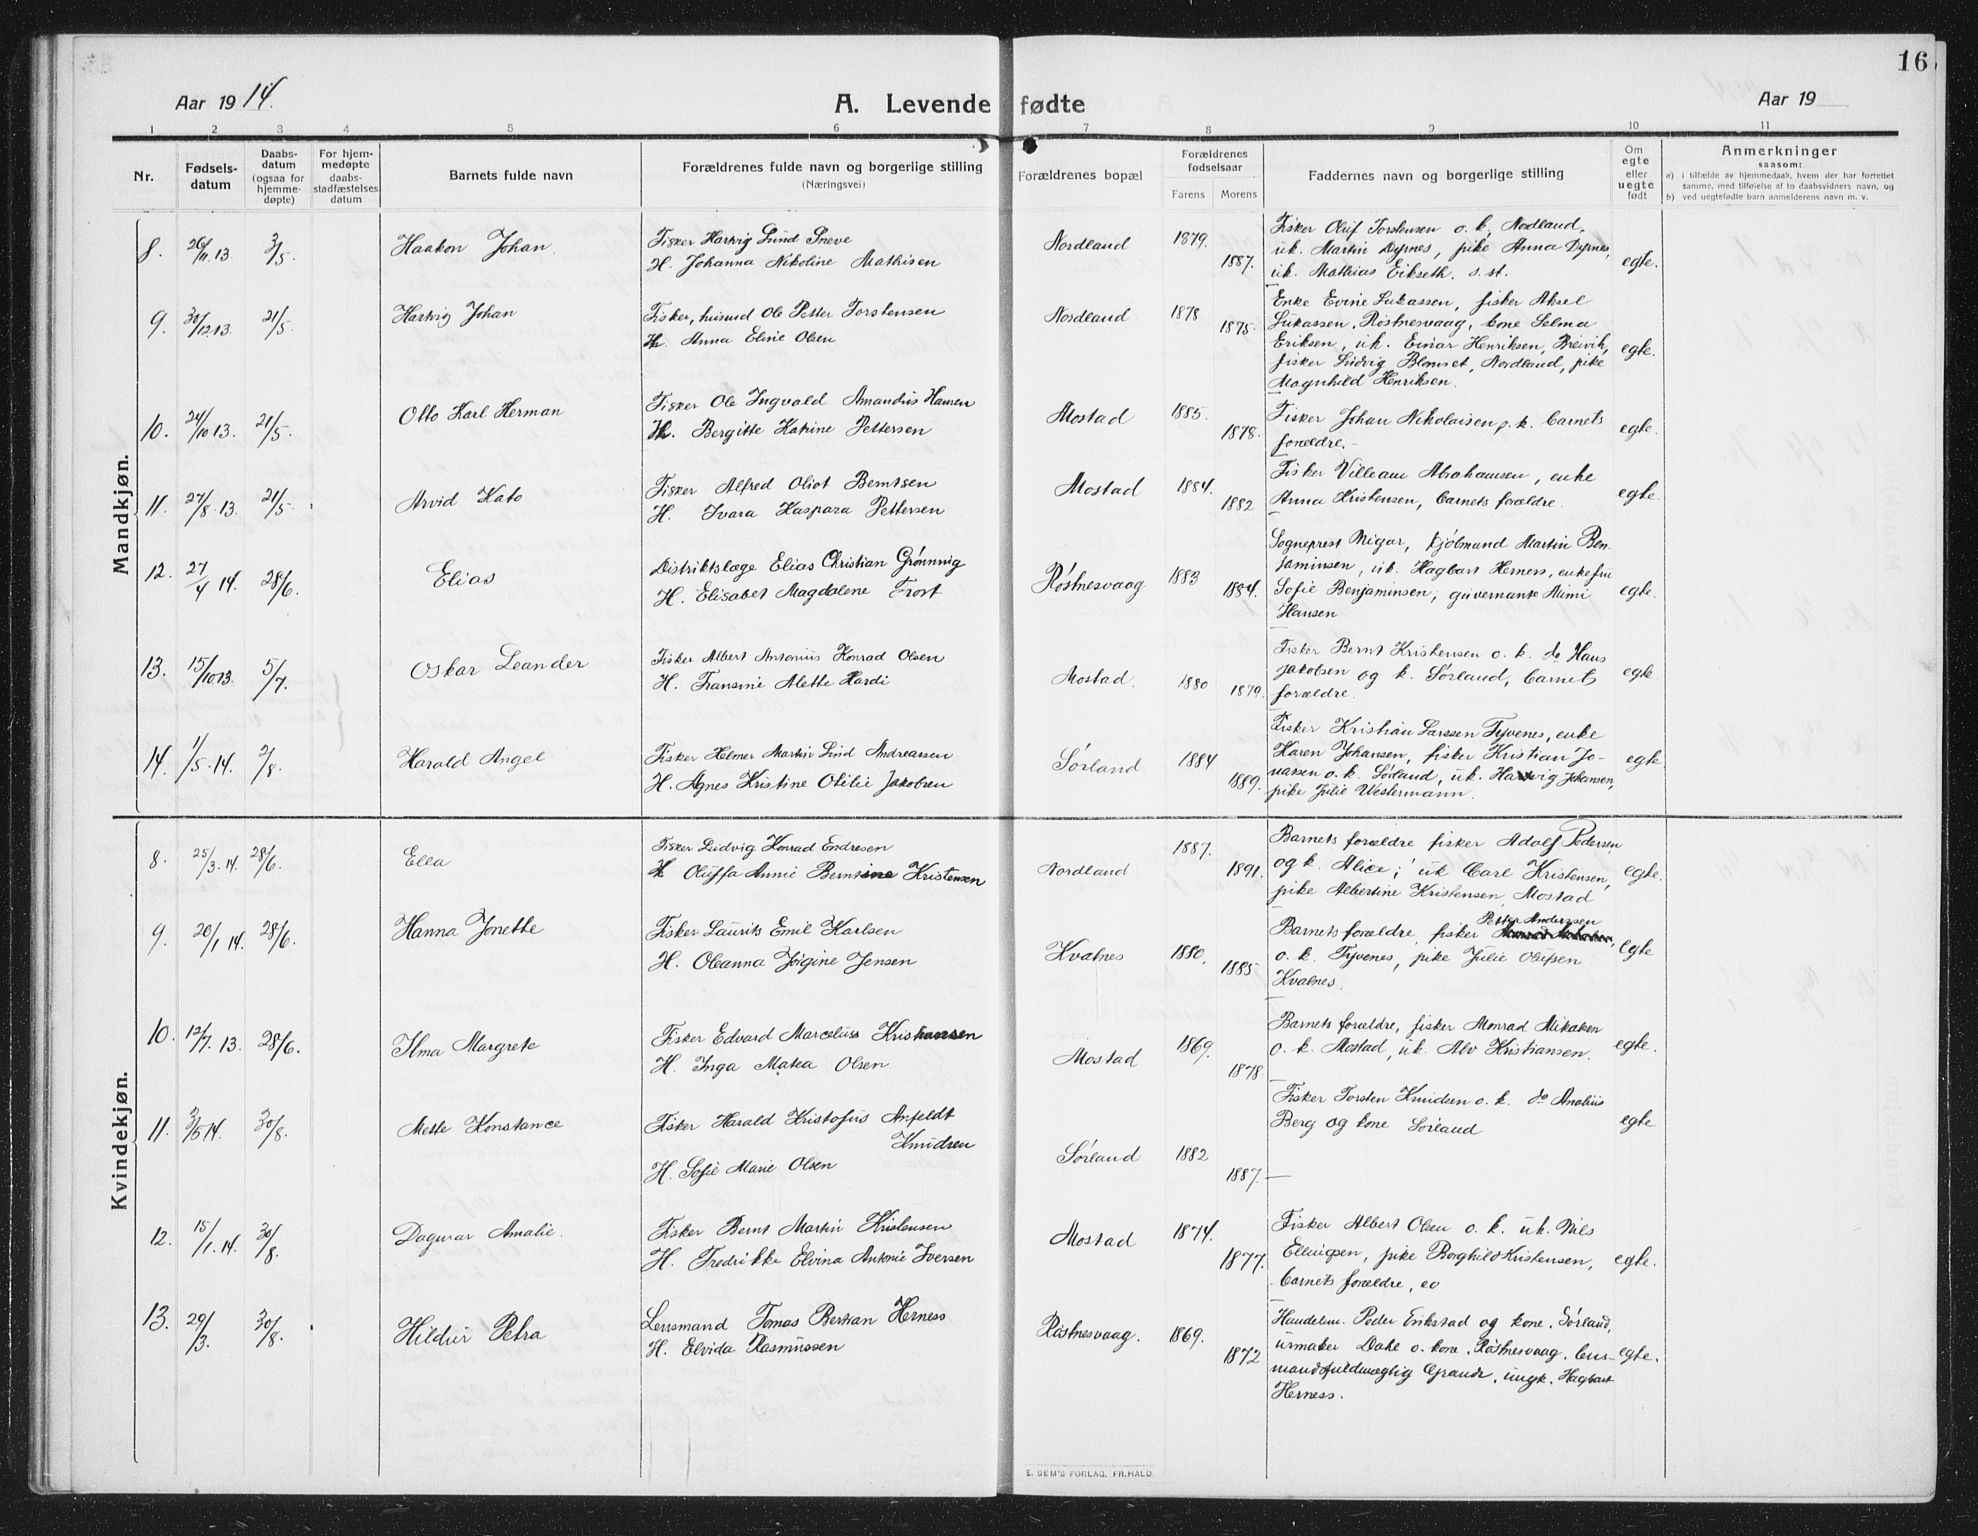 16
Aar 1914.
A. Levende fødte
Aar 19
1 2 3 4 5 6 7 8 9 10 11
Nr.
Fødsels-
datum
Daabs-
datum
(ogsaa for
hjemme-
døpte)
For hjem-
medøpte
daabs-
stadfæstelses
datum
Barnets fulde navn
Forældrenes fulde navn og borgerlige stilling
(Næringsvei)
Forældrenes bopæl
Forældrenes
fødselsaar
Farens Morens
Faddernes navn og borgerlige stilling
Om
egte
eller
uegte
født
Anmerkninger
saasom:
a) i tilfælde av hjemmedaab, hvem der har forrettet
samme, med tilføielse af to daabsvidners navn, og
b) ved uegtefødte barn anmelderens navn m. v.
Mandkjøn.
8. 26/11 13. 3/5. Haakon Johan.
Fisker Hartvig Lund Sneve
H. Johanna Nikoline Mathisen
Nordland 1879. 1887.
Fisker Oluf Torstensen o. k., Nordland,
uk. Martin Dyrnes, pike Anna Dyrnes,
uk. Mathias Eikseth. s. st.
egte.
9. 30/12 13. 21/5. Hartvig Johan
Fisker, husmd Ole Petter Torstensen
H. Anna Eline Olsen
Nordland 1878 1875.
Enke Evine Lukassen, fisker Aksel
Lukassen, Røstnesvaag, kone Selma
Eriksen, uk. Einar Henriksen, Breivik,
fisker Ludvig Blomset, Nordland, pike
Magnhild Henriksen.
egte.
10. 24/10 13. 21/5. Otto Karl Herman
Fisker Ole Ingvald Amandus Hansen
H. Bergitte Katrine Pettersen
Mostad 1885. 1878.
Fisker Johan Nikolaisen o. k. barnets
forældre.
egte.
11. 27/8 13. 21/5. Arvid Kato
Fisker Alfred Oliot Berntsen
H. Ivara Kaspara Pettersen
Mostad 1884. 1882
Fisker Villeam Abrahamsen, enke
Anna Kristensen, barnets forældre.
egte.
12. 27/4 14. 28/6. Elias
Distriktslæge Elias Christian Grønnvig
H. Elisabet Magdalene Frost
Røstnesvaag 1883 1884.
Sogneprest Migar, kjøbmand Martin Ben-
jaminsen, uk. Hagbart Herness, enkefru
Sofie Benjaminsen, guvernante Mimi
Hansen
egte.
13. 15/10 13. 5/7. Oskar Leander
Fisker Albert Antonius Konrad Olsen
H. Fransine Alette Hardi
Mostad. 1880 1879.
Fisker Bernt Kristensen o. k. do Hans
Jakobsen og k. Sørland, barnets
forældre.
egte
14. 1/5 14. 2/8. Harald Angel
Fisker Helmer Martin Lind Andreassen
H. Agnes Kristine Otilie Jakobsen
Sørland 1884 1889.
Fisker Kristian Larssen Tyvenes, enke
Karen Johansen, fisker Kristian Jo-
nassen o. k. Sørland, uk. Hartvig Johansen,
pike Julie Westermann.
egte
Kvindekjøn.
8. 25/3 14. 28/6. Ella
Fisker Ludvig Konrad Endresen
H. Oluffa Annie Berntine Kristensen
Nordland 1887. 1891.
Barnets forældre fisker Adolf Pedersen
og k. Alice; uk Carl Kristensen,
pike Albertine Kristensen, Mostad
egte.
9. 20/1 14. 28/6. Hanna Jonette
Fisker Laurits Emil Karlsen
H. Oleanna Jørgine Jensen
Kvalnes 1880. 1885
Petter Anderssen
Barnets forældre, fisker
o. k. Tyvenes, pike Julie Olufsen
Kvalnes.
egte
10. 12/7 13. 28/6. Ilma Margrete
Fisker Edvard Marcelius Kristiansen
H. Inga Matea Olsen
Mostad 1869. 1878
Barnets forældre, fisker Monrad Mikalsen
o. k. Mostad, uk. Alv Kristiansen.
egte.
11. 3/5 14. 30/8. Mette Konstance
Fisker Harald Kristofus Anfeldt
Knudsen
H. Sofie Marie Olsen
Sørland 1882 1887.
Fisker Torsten Knudsen o. k. do Analius
Berg og kone Sørland
egte
12. 15/1 14. 30/8. Dagmar Amalie.
Fisker Bernt Martin Kristensen
H. Fredrikke Elvina Antonie Iversen
Mostad 1874. 1877.
Fisker Albert Olsen o. k. uk. Nils
Ellingsen, pike Borghild Kristensen,
barnets forældre,
egte.
13. 29/3. 30/8. Hildur Petra
Lensmand Tomas Bertran Herness
H. Elvida Rasmussen
Røstnesvaag. 1869. 1872
Handelsm. Peder Erikstad og kone, Sørland,
urmaker Dahl o. kone, Røstnesvaag, lens-
mandsfuldmægtig Grande, ungk. Hagbart
Herness.
egte.
E. SEM'S FORLAG, FR.HALD.